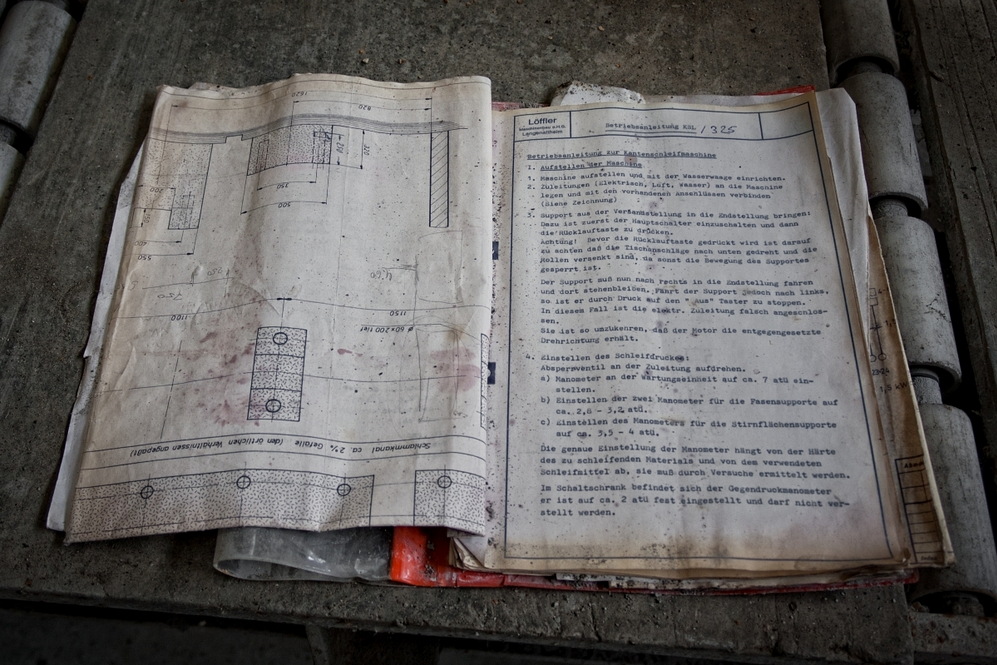 1620
820
210
320
350
500
200
400
550
1100
1150
Ø 60x200 tief
Schlammkanal ca 2% Gefälle (den örtlichen Verhältnissen angepaßt)
Löffler
Maschinenbau o.H.G.
Langenaltheim
Betriebsanleitung KSL / 325
Betriebsanleitung zur Kantenschleifmaschine
1. Aufstellen der Maschine
1. Maschine aufstellen und mit der Wasserwaage einrichten.
2. Zuleitungen (Elektrisch, Luft, Wasser) an die Maschine
legen und mit den vorhandenen Anschlüssen verbinden
(Siehe Zeichnung)
3. Support aus der Versandstellung in die Endstellung bringen:
Dazu ist zuerst der Hauptschalter einzuschalten und dann
die Rücklauftaste zu drücken.
Achtung! Bevor die Rücklauftaste gedrückt wird ist darauf
zu achten daß die Tischanschläge nach unten gedreht und die
Rollen versenkt sind, da sonst die Bewegung des Supportes
gesperrt ist.
Der Support muß nun nach rechts in die Endstellung fahren
und dort stehenbleiben. Fährt der Support jedoch nach links,
so ist er durch Druck auf den " Aus" Taster zu stoppen.
In diesem Fall ist die elektr. Zuleitung falsch angeschlos-
sen.
Sie ist so umzukehren, daß der Motor die entgegengesetzte
Drehrichtung erhält.
4. Einstellen des Schleifdruckes:
Absperrventil an der Zuleitung aufdrehen.
a) Manometer an der Wartungseinheit auf ca. 7 atü ein-
stellen.
b) Einstellen der zwei Manometer für die Fasensupporte auf
ca. 2,8 - 3,2 atü.
c) Einstellen des Manometers für die Stirnflächensupporte
auf ca. 3,5 - 4 atü.
Die genaue Einstellung der Manometer hängt von der Härte
des zu schleifenden Materials und von dem verwendeten
Schleifmittel ab, sie muß durch Versuche ermittelt werden.
Im Schaltschrank befindet sich der Gegendruckmanometer
er ist auf ca. 2 atü fest eingestellt und darf nicht ver-
stellt werden.